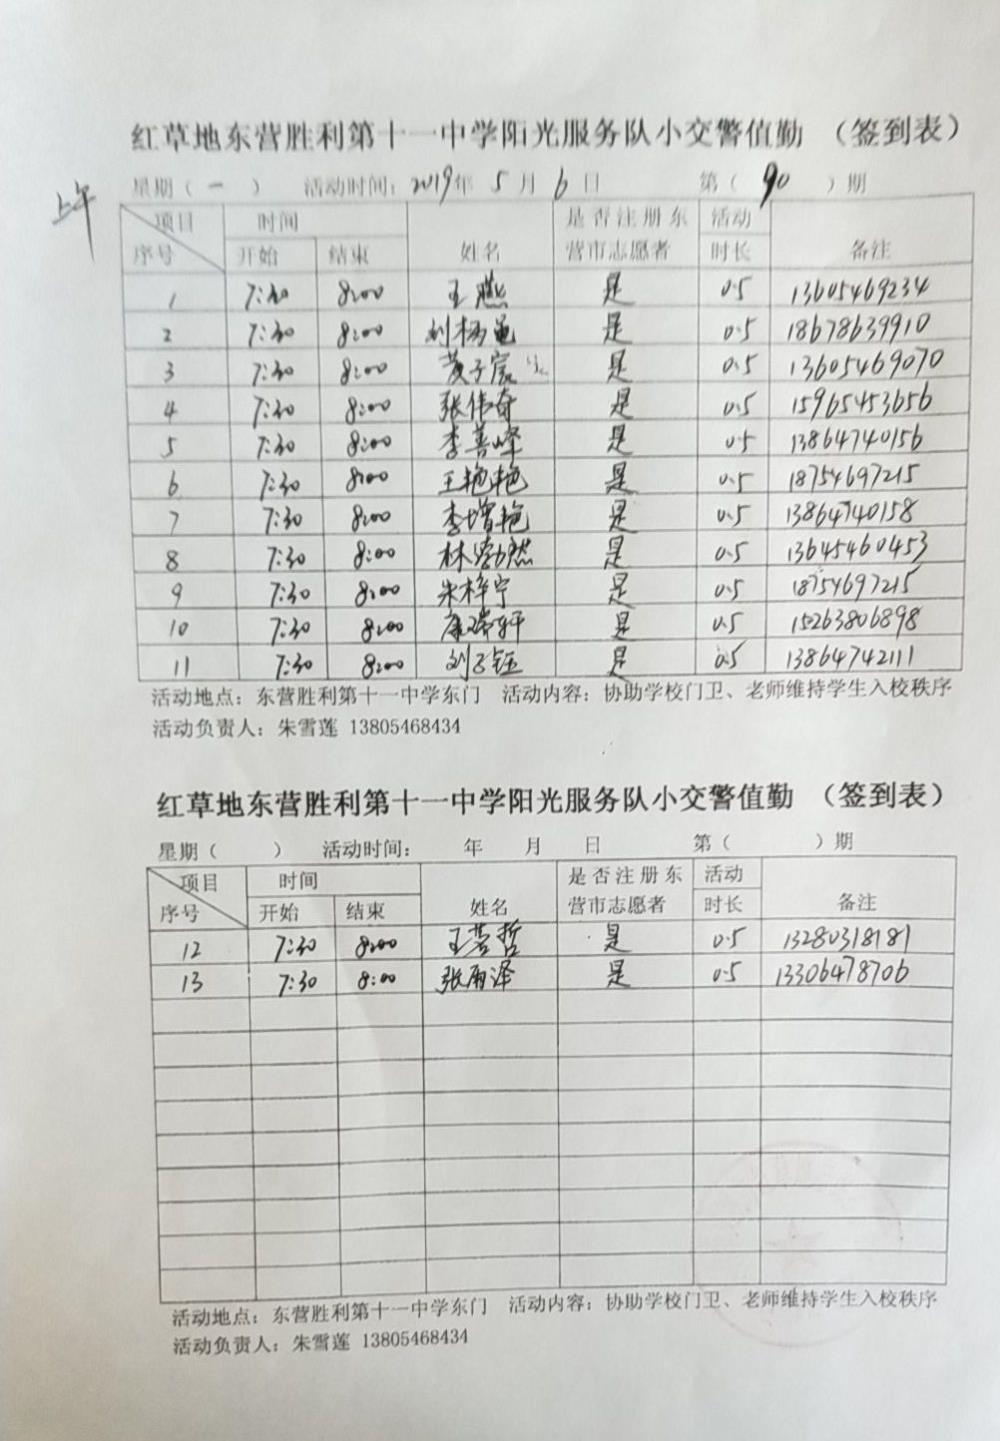 红草地东营胜利第十一中学阳光服务队小交警值勤 （签到表）
上午
星期（ 一 ） 活动时间：2019年 5 月 6 日 第（ 90 ）期
项目 时间 是否注册东 活动
序号 开始 结束 姓名 营市志愿者 时长 备注
1 7:30 8:00 王燕 是 0.5 13605469234
2 7:30 8:00 刘杨 是 0.5 18678639910
3 7:30 8:00 黄子宸 是 0.5 13605469070
4 7:30 8:00 张伟奇 是 0.5 15965453656
5 7:30 8:00 李善峰 是 0.5 13864740156
6 7:30 8:00 王艳艳 是 0.5 18754697215
7 7:30 8:00 李增艳 是 0.5 13864740158
8 7:30 8:00 林浩然 是 0.5 13645460453
9 7:30 8:00 朱梓宁 是 0.5 18754697215
10 7:30 8:00 康瑞轩 是 0.5 15263806898
11 7:30 8:00 刘子钰 是 0.5 13864742111
活动地点：东营胜利第十一中学东门 活动内容：协助学校门卫、老师维持学生入校秩序
活动负责人：朱雪莲 13805468434
红草地东营胜利第十一中学阳光服务队小交警值勤 （签到表）
星期（ ） 活动时间： 年 月 日 第（ ）期
项目 时间 是否注册东 活动
序号 开始 结束 姓名 营市志愿者 时长 备注
12 7:30 8:00 王茗哲 是 0.5 13280318181
13 7:30 8:00 张雨泽 是 0.5 13306478706
活动地点：东营胜利第十一中学东门 活动内容：协助学校门卫、老师维持学生入校秩序
活动负责人：朱雪莲 13805468434